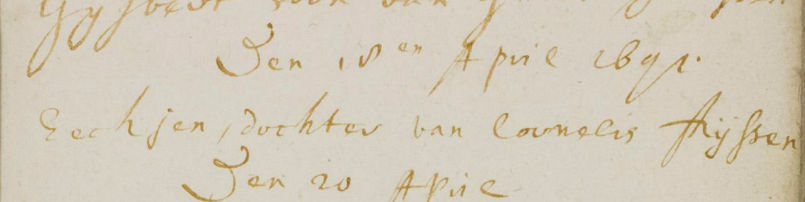 Gijsbert soon van
Den 18en April 1691.
Eechjen, dochter van Cornelis Thijssen
Den 20 April